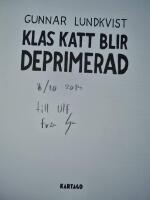 GUNNAR LUNDKVIST
KLAS KATT BLIR
DEPRIMERAD
till Ulf
från
KARTAGO